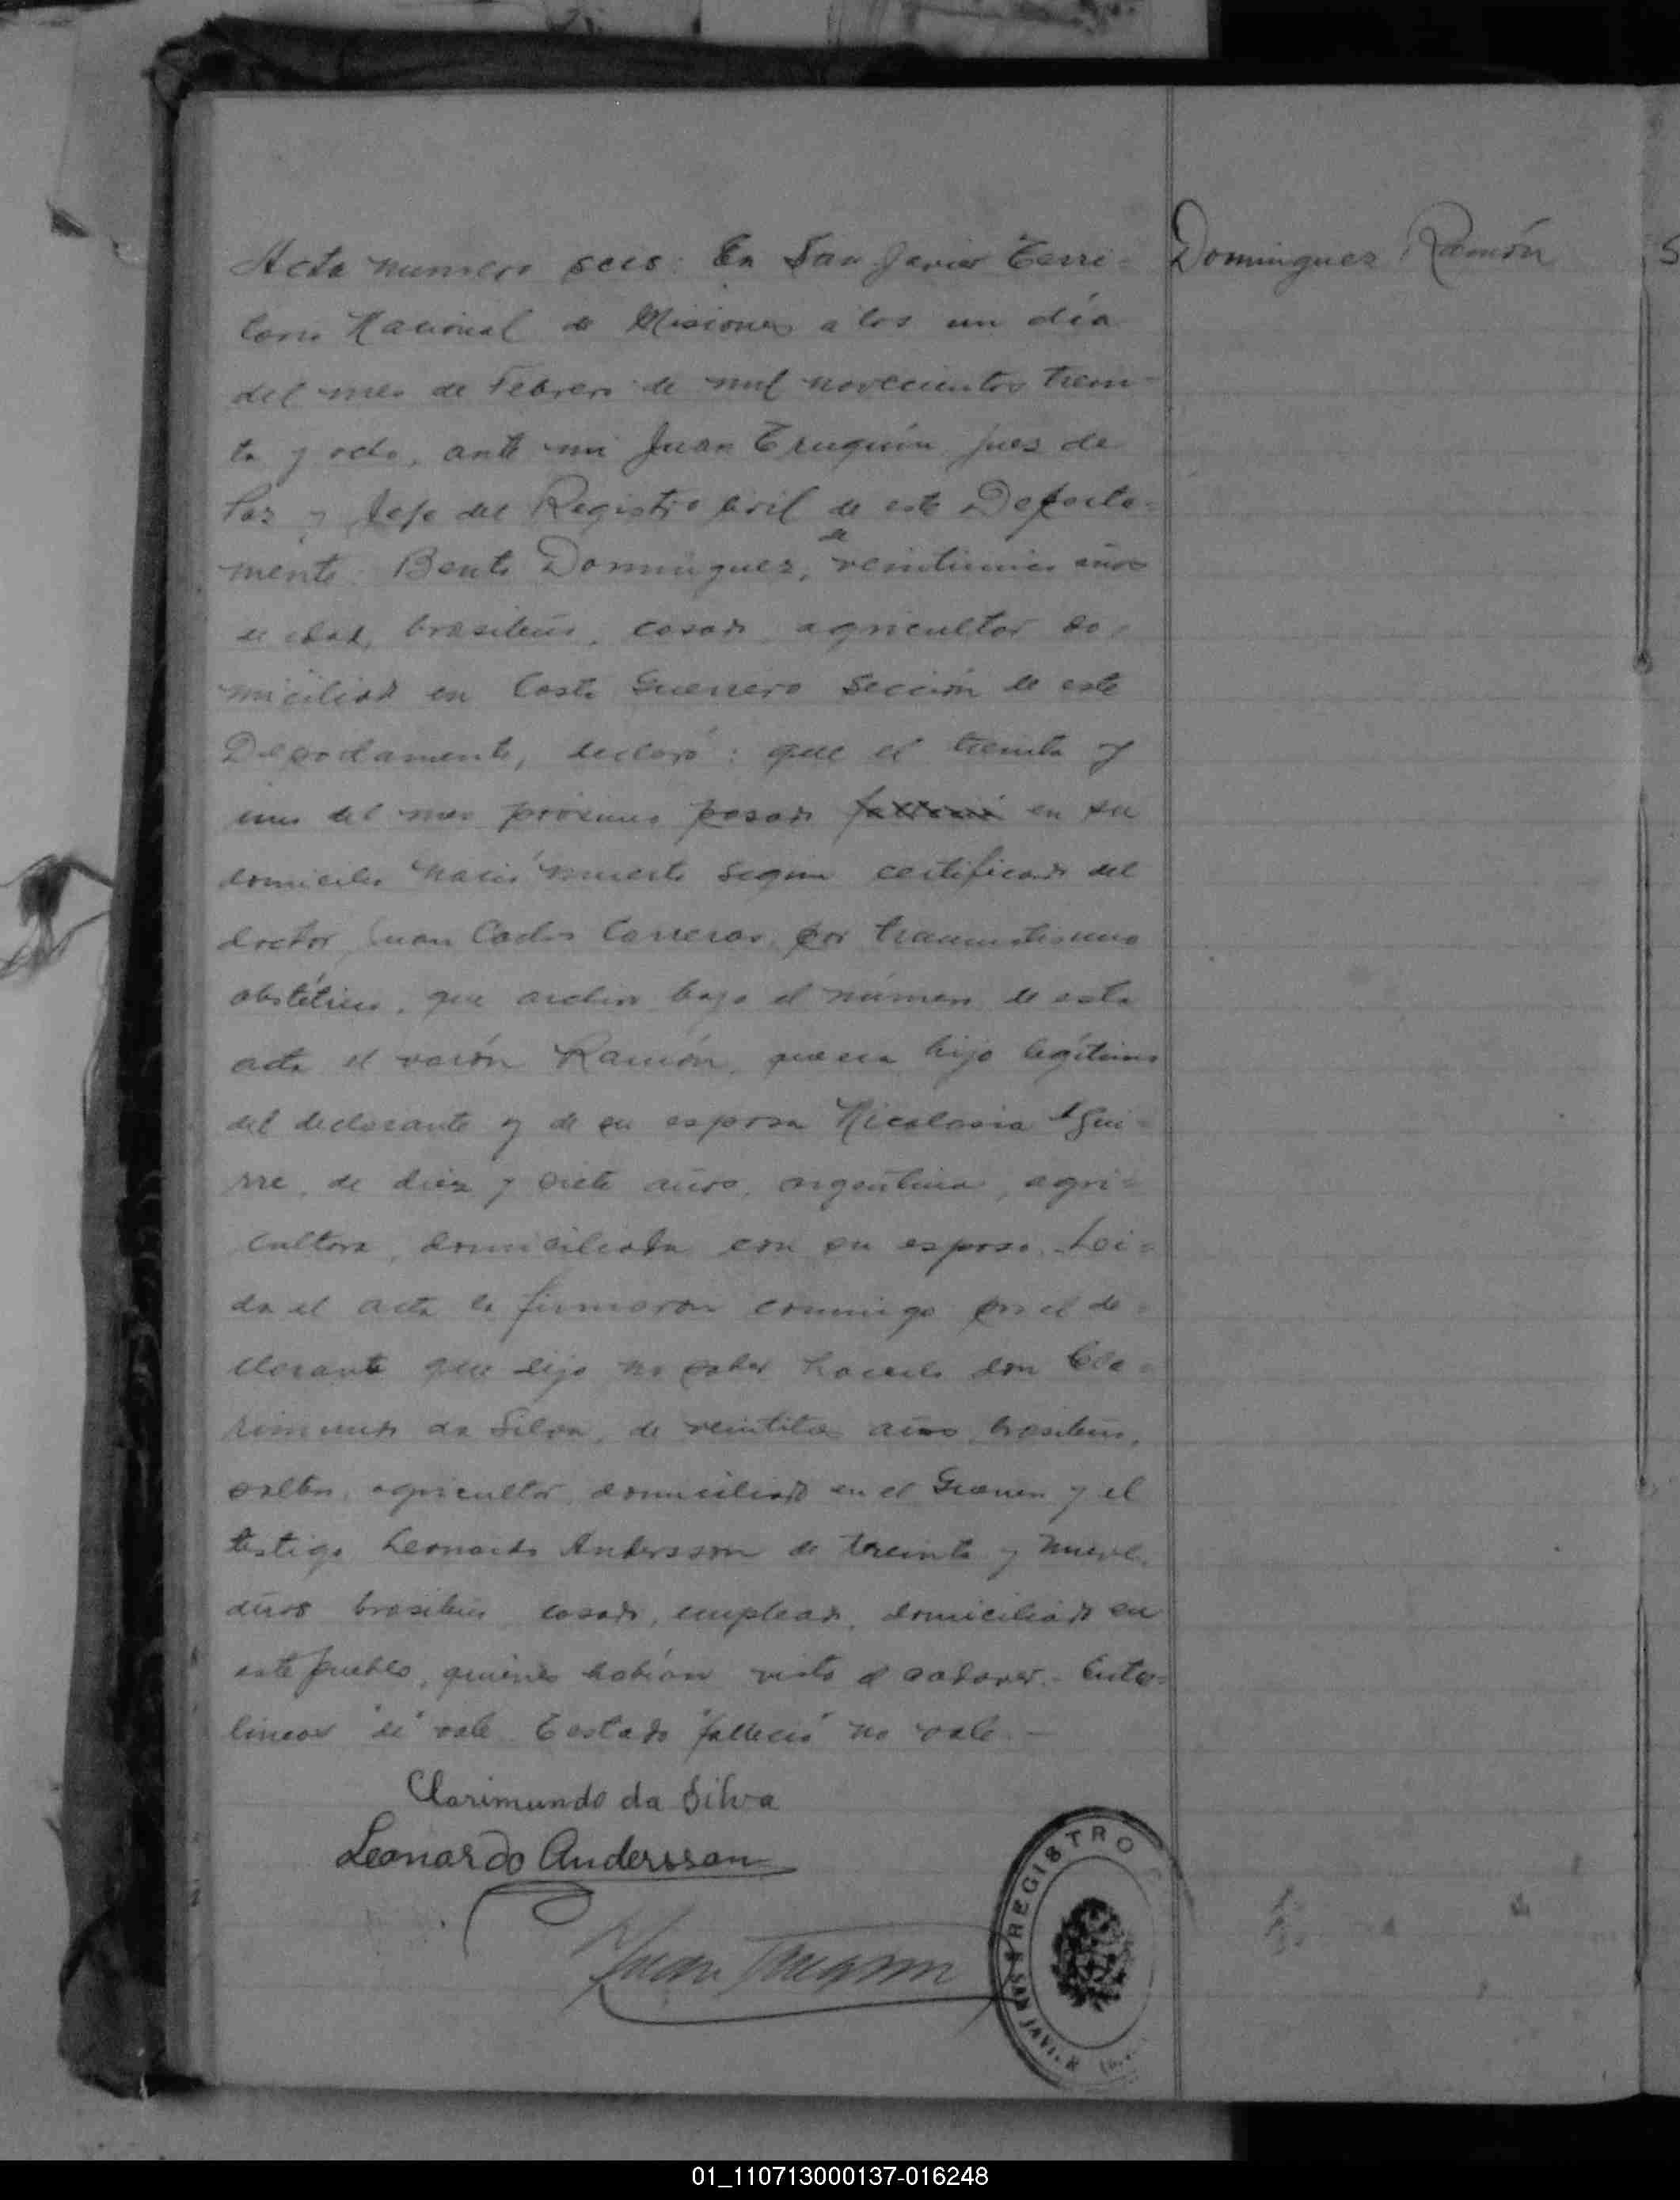 Acta numero seis: En San Javier Terri=
torio Nacional de Misiones a los un día
del mes de Febrero de mil novecientos trein=
ta y ocho, ante mi Juan Truquin Juez de
Paz y Jefe del Registro Civil de este Departa=
mento. Bento Dominguez, de años
de edad, brasileño, casado, agricultor do=
miciliado en Costa Guerrero Sección de este
Departamento, declaró: que el treinta y
uno del mes próximo pasado falleció en su
domicilio nació muerto según certificado del
doctor Juan Carlos Carreras, por traumatismo
obstétrico, que archivo bajo el número de esta
acta el varón Ramón, que era hijo legítimo
del declarante y de su esposa Nicolasia Agui=
rre, de diez y siete años, argentina, agri=
cultora, domiciliada con su esposo. Lei=
da el acta la firmaron conmigo por el de=
clarante que dijo no saber hacerlo don Cla=
rimundo da Silva, de años, brasileño,
soltero, agricultor, domiciliado en el y el
testigo Leonardo Andersson de treinta y nueve
años brasileño casado, empleado, domiciliado en
este pueblo, quienes habían visto el cadaver.- Entre=
lineas "de" vale Testado "falleció" no vale.-
Clarimundo da Silva
Leonardo Andersson
Juan Truquin
Dominguez Ramón
REGISTRO
SAN JAVIER
01_110713000137-016248